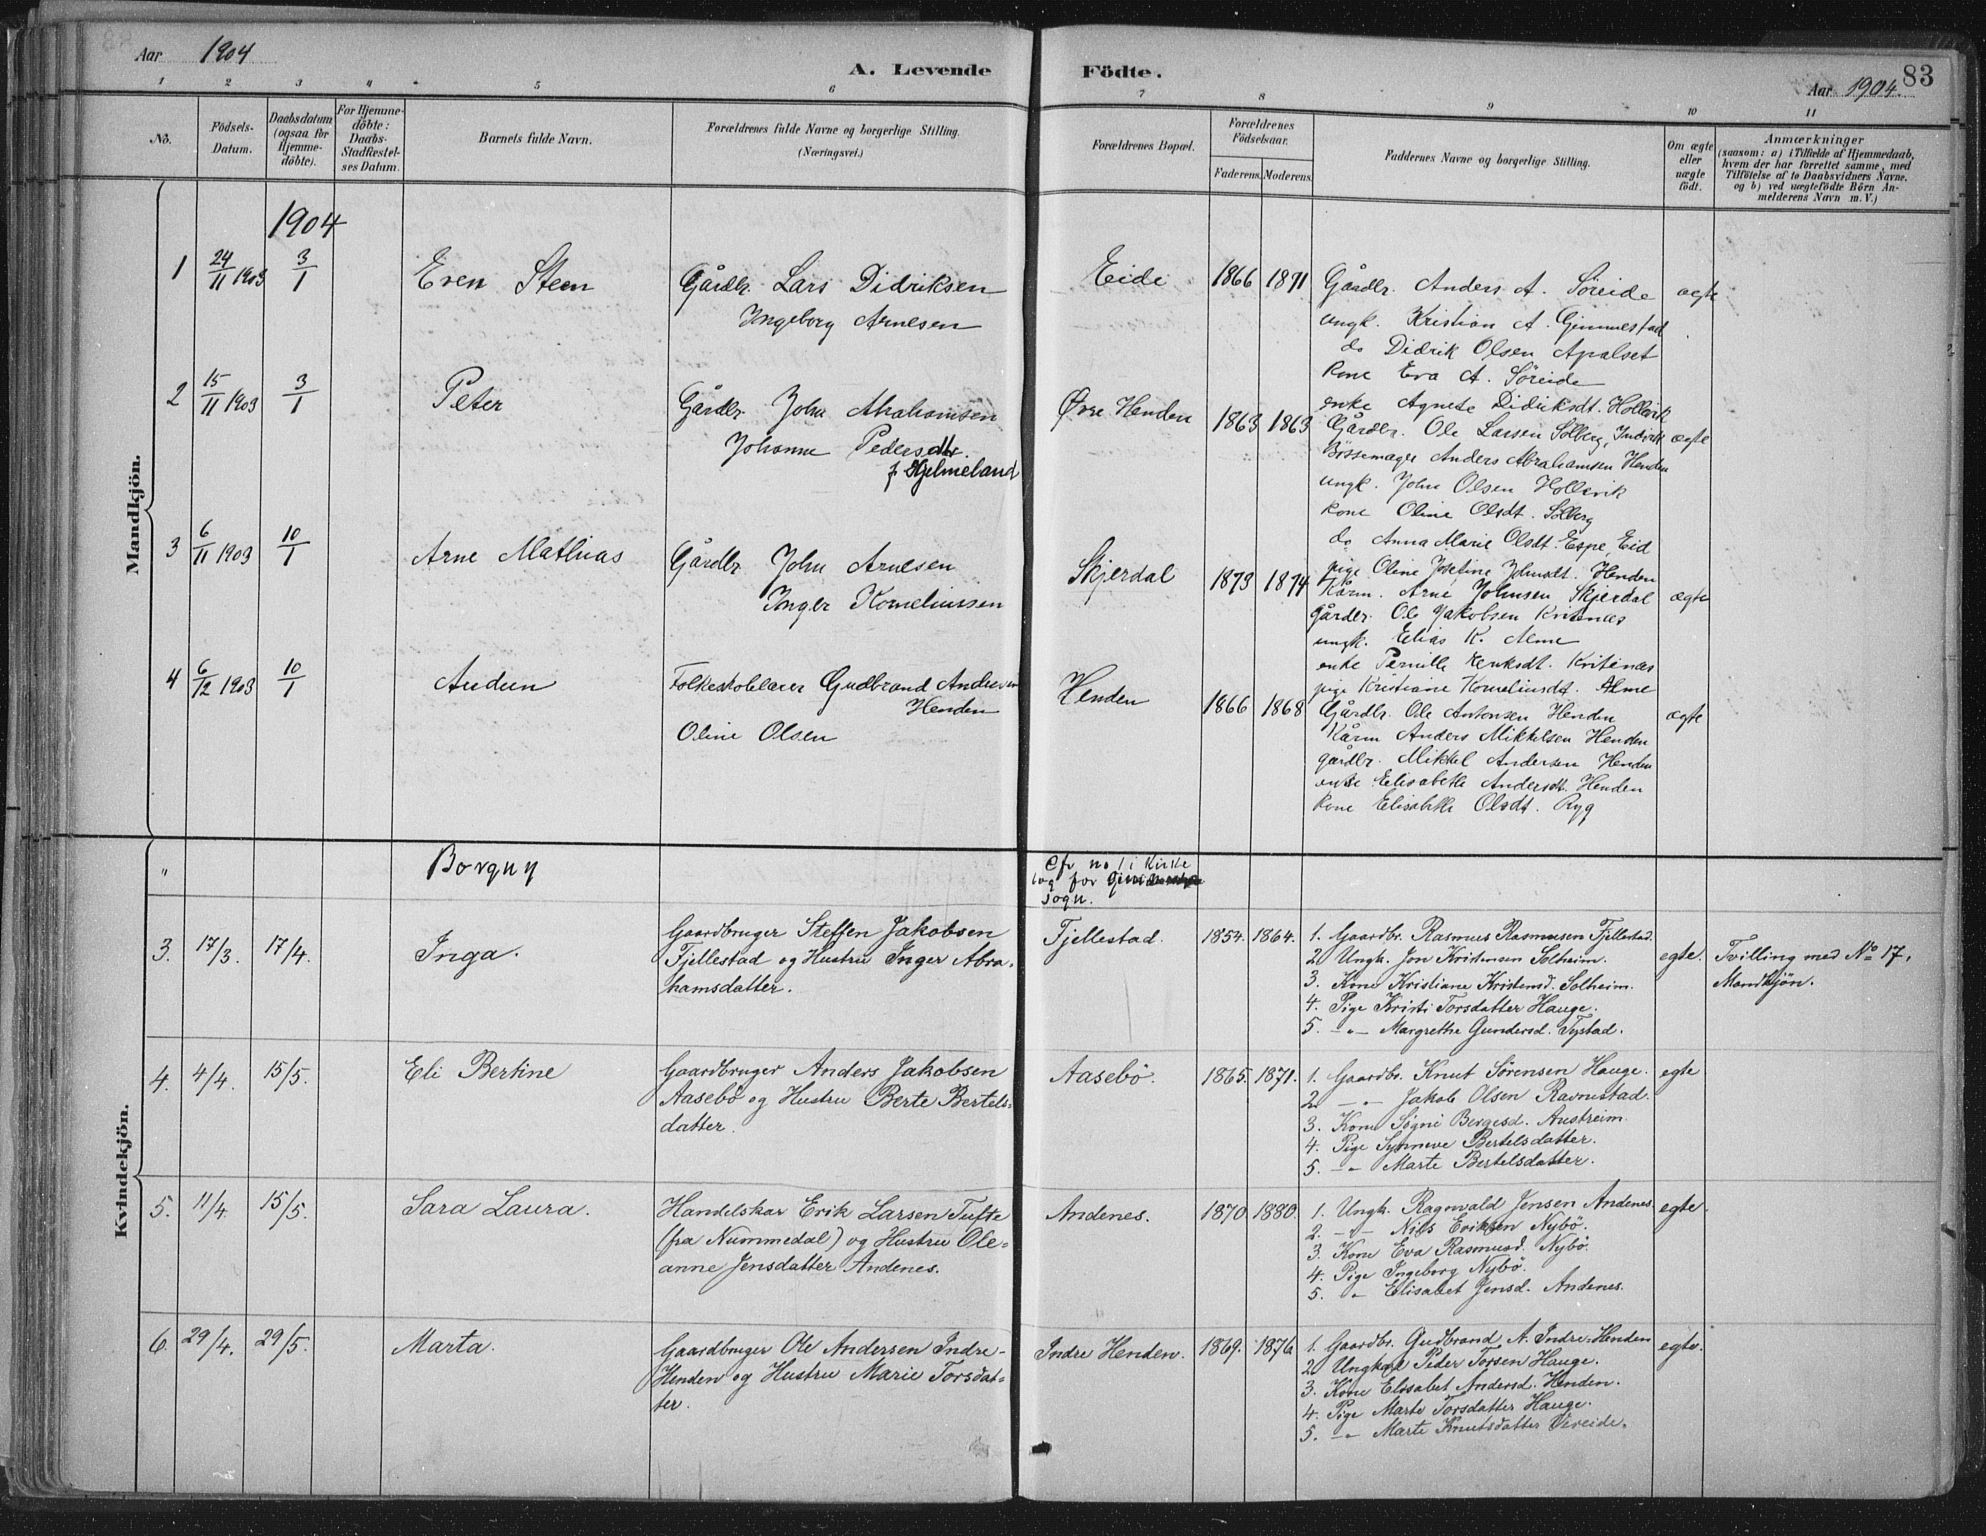 Aar 1904
A. Levende Födte.
Aar 1904. 83
1 2 3 4 5 6 7 8 9 10 11
No.
Födsels-Datum.
Daabsdatum (ogsaa for Hjemmedöbte).
For Hjemmedöbte: Daabs-Stadfæstelses Datum.
Barnets fulde Navn.
Forældrenes fulde Navne og borgerlige Stilling. (Næringsvei.)
Forældrenes Bopæl.
Forældrenes Födselsaar.
Faderens. Moderens.
Faddernes Navne og borgerlige Stilling.
Om ægte eller uægte födt.
Anmærkninger
(saasom: a) i Tilfælde af Hjemmedaab, hvem der har forrettet samme, med Tilföielse af to Daabsvidners Navne, og b) ved uægtefödte Börn Anmelderens Navn m. V.)
Mandkjön.
1904
1 24/11 1903 3/1 Even Steen
Gårdbr. Lars Didriksen
Ingeborg Arnesen
Eide 1866 1871
Gårdbr. Anders A. Søreide
ungk. Kristian A. Gimmestad
do Didrik Olsen Apalset
kone Eva A. Søreide
enke Agnete Didriksdt. Hollevik
ægte
2 15/11 1903 3/1 Peter
Gårdbr. John Abrahamsen
Johanne Pedersdtr.
f. Hjelmeland
Øvre Henden 1863 1863
Gårdbr. Ole Larsen Solberg, Indvik
Bössemager Anders Abrahamsen Henden
ungk. John Olsen Hollevik
kone Oline Olsdt. Solberg
do Anna Marie Olsdt. Espe, Eid
pige Oline Josefine Johnsdt. Henden
ægte
3 6/11 1903 10/1 Arne Mathias
Gårdbr. John Arnesen
Inger Korneliussen
Skjerdal 1873 1874
Kårm. Arne Johnsen Skjerdal
gårdbr. Ole Jakobsen Kritenæs
ungk. Elias K. Alme
enke Pernille Henksdt. Kritenæs
pige Kristiane Korneliusdt. Alme
ægte
4 6/12 1903 10/1 Audun
Folkeskolelærer Gudbrand Andersen
Henden
Oline Olsen
Henden 1866 1868
Gårdbr. Ole Antonsen Henden
Kårm Anders Mikkelsen Henden
gårdbr. Mikkel Andersen Henden
enke Elisabeth Andersdt. Henden
kone Elisabeth Olsdt. Ryg
ægte
Kvindekjön.
" Borgny
cfr no 1 i Kirke
bog for
sogn.
3. 17/3. 17/4. Inga.
Gaardbruger Steffen Jakobsen
Fjellestad og Hustru Inger Abra-
hamsdatter.
Fjellestad. 1854. 1864.
1. Gaardbr. Rasmus Rasmussen Fjellestad.
2. Ungk. Jon Kristensen Solheim.
3. Kone Kristiane Kristensd. Solheim.
4. Pige Kristi Torsdatter Hauge.
5. -"- Margrethe Gundersd. Tystad.
egte.
Tvilling med No 17,
Mandkjön.
4. 4/4. 15/5. Eli Bertine
Gaardbruger Anders Jakobsen
Aasebö og Hustru Berte Bertels-
datter.
Aasebö. 1865. 1871.
1. Gaardbr. Knut Sörensen Hauge.
2. -"- Jakob Olsen Ravnestad.
3. Kone Søgni Børgesd. Austreim.
4. Pige Synneve Bertelsdatter.
5. -"- Marte Bertelsdatter.
egte
5. 11/4 15/5. Sara Laura.
Handelskar Erik Larsen Tufte
(fra Nummedal) og Hustru Ole-
anne Jensdatter Andenes.
Andenes. 1870 1880.
1. Ungk. Ragnvald Jensen Andenes.
2. -"- Nils Eriksen Nybö.
3. Kone Eva Rasmusd. Nybö.
4. Pige Ingeborg Nybö.
5. " Elisabet Jensd. Andenes.
egte.
6. 29/4. 29/5. Marta.
Gaardbruger Ole Andersen Indre-
Henden og Hustru Marie Torsdat-
ter.
Indre Henden. 1869. 1876
1. Gaardbr. Gudbrand A. Indre-Henden
2. Ungkar Peder Torsen Hauge.
3. Kone Elisabet Andersd. Henden.
4. Pige Marte Torsdatter Hauge.
5. -"- Marte Knutsdatter Vereide.
egte.